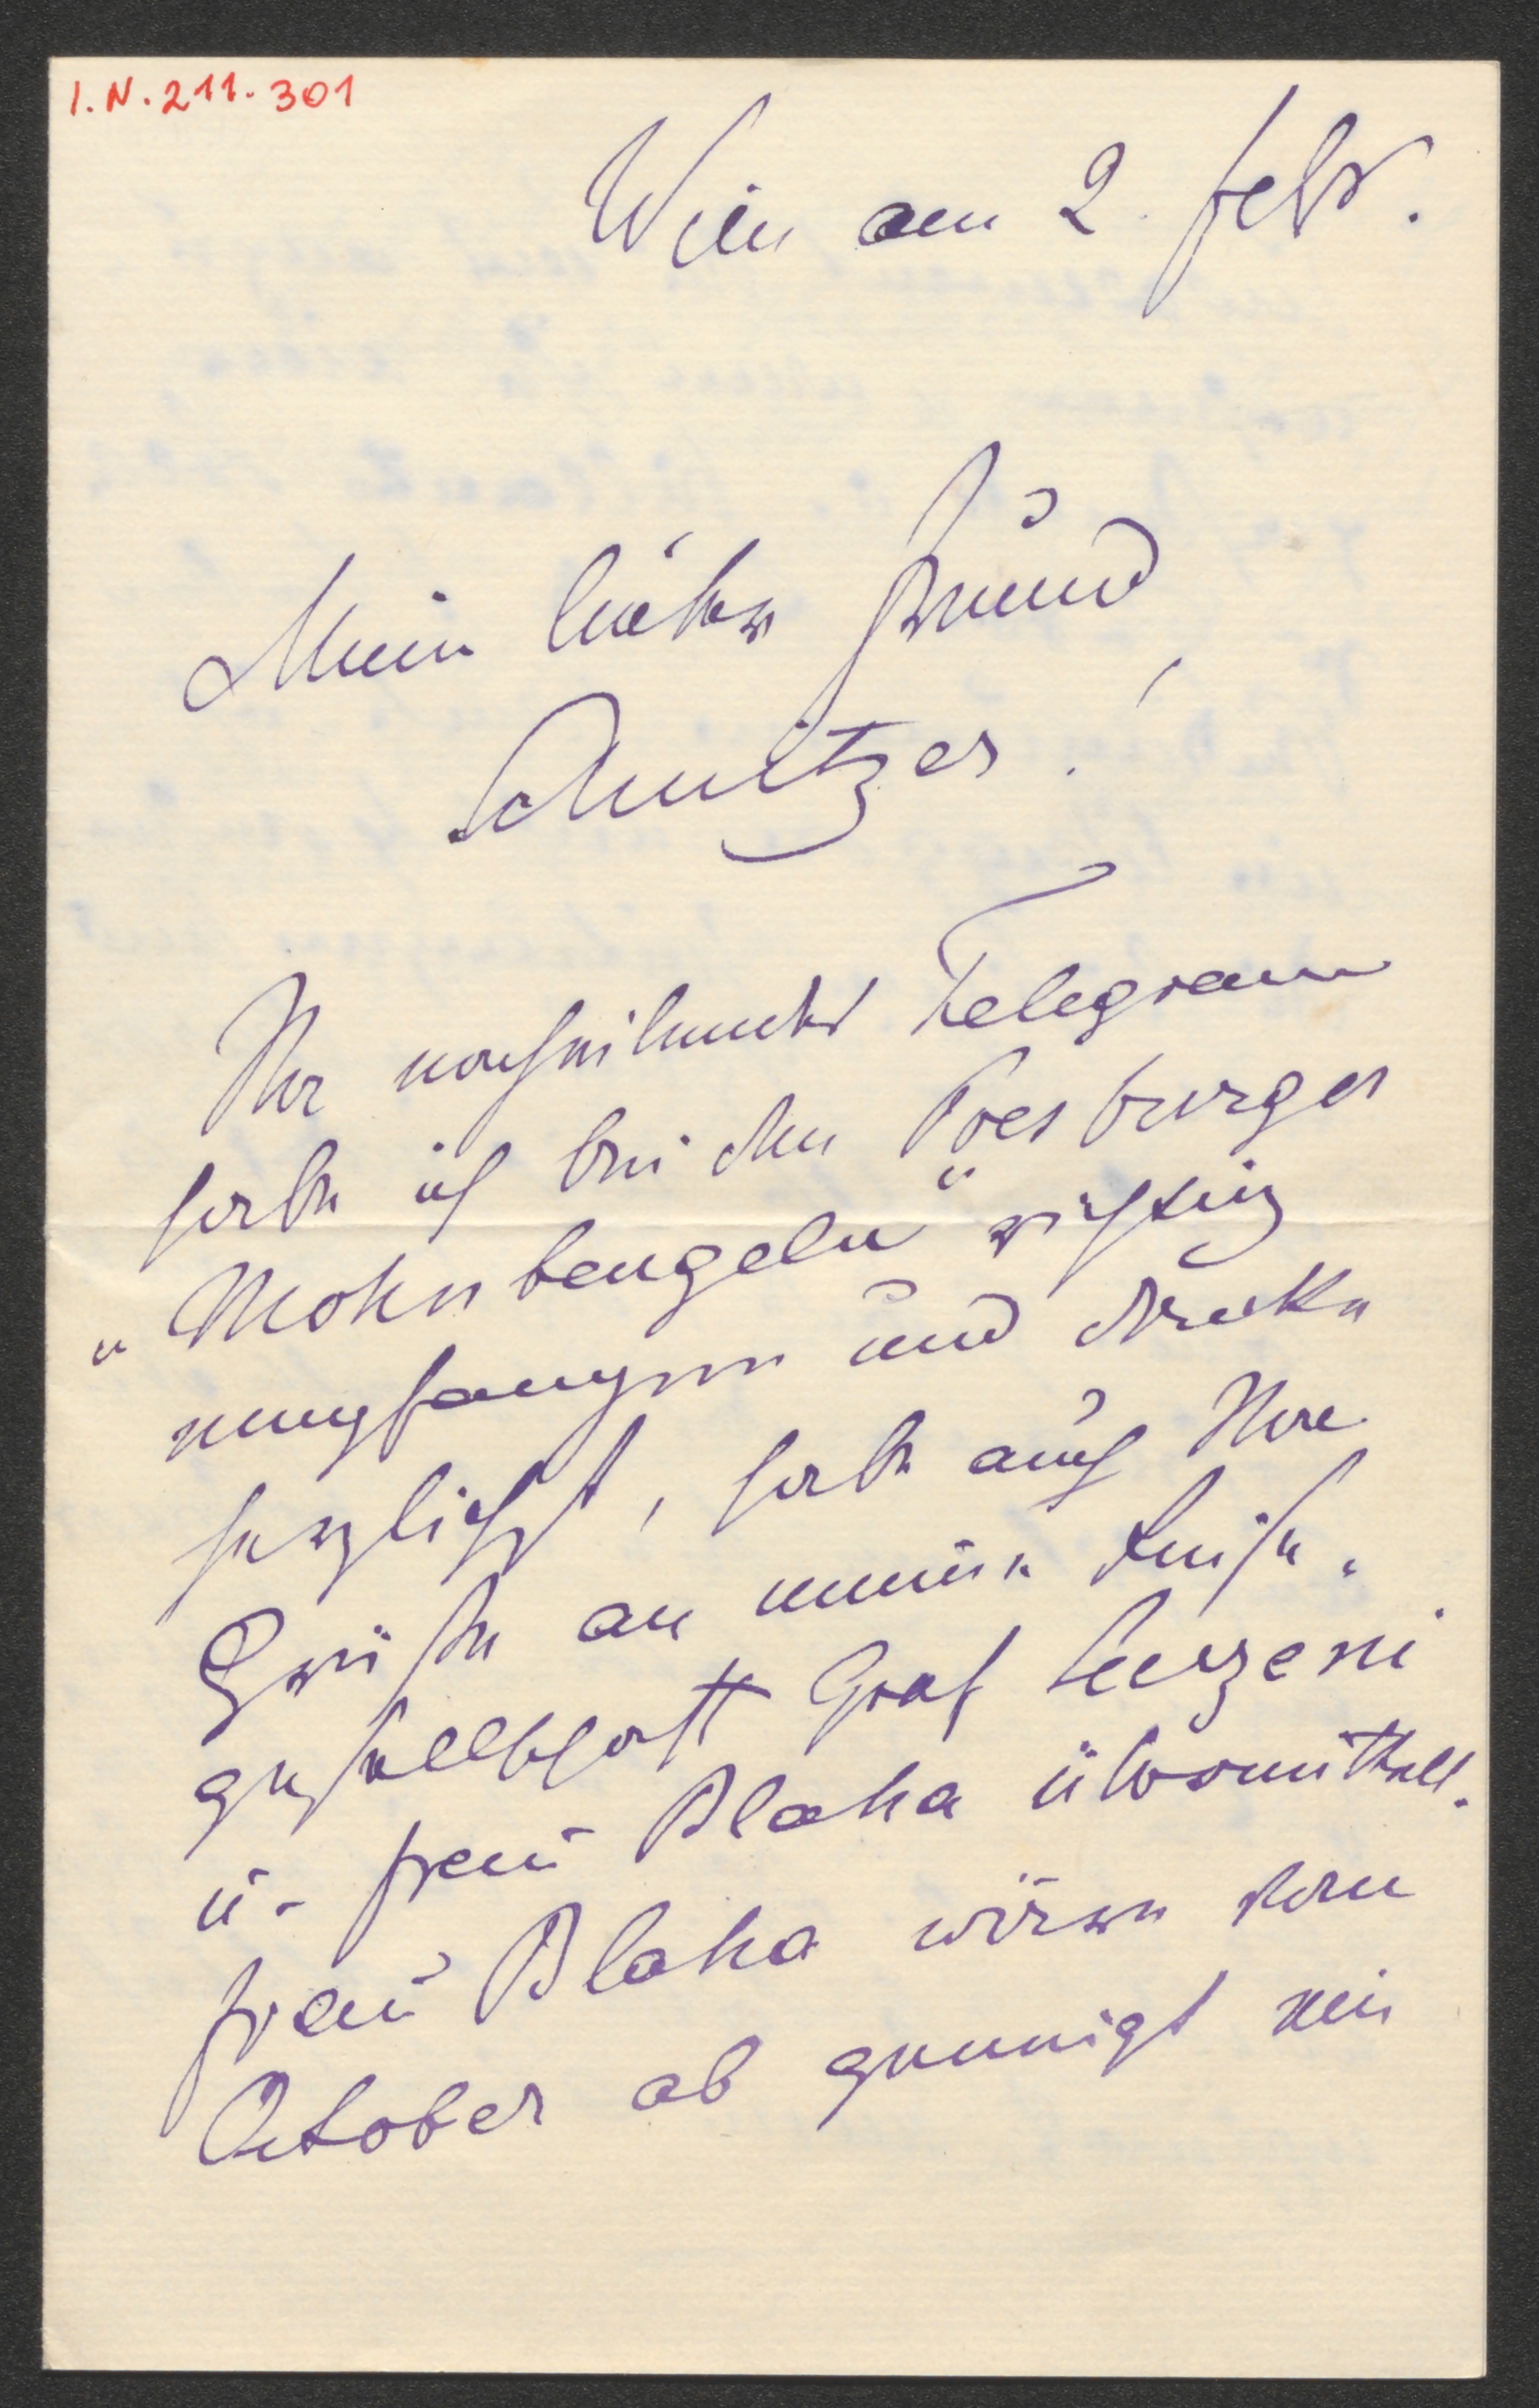 I.N. 211.301
Wien am 2. Febr.
Mein lieber Freund
Schnitzer!
Ihr nacheilendes Telegram
habe ich bei den Presburger
„Mohnbeugeln" richtig
empfangen und danke
herzlichst, habe auch Ihre
Grüße an meine Reise-
gesellschaft Graf
u. Frau Blaha übermittelt.
Frau Blaha wäre von
October ab geneigt ein